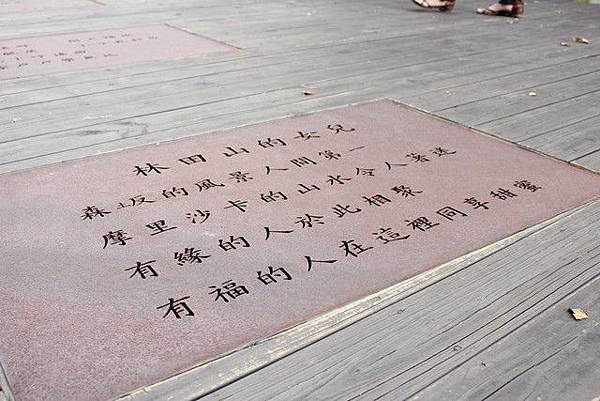 林田山的女兒
森坂的風景人間第一
摩里沙卡的山水令人著迷
有緣的人於此相聚
有福的人在這裡同享甜蜜